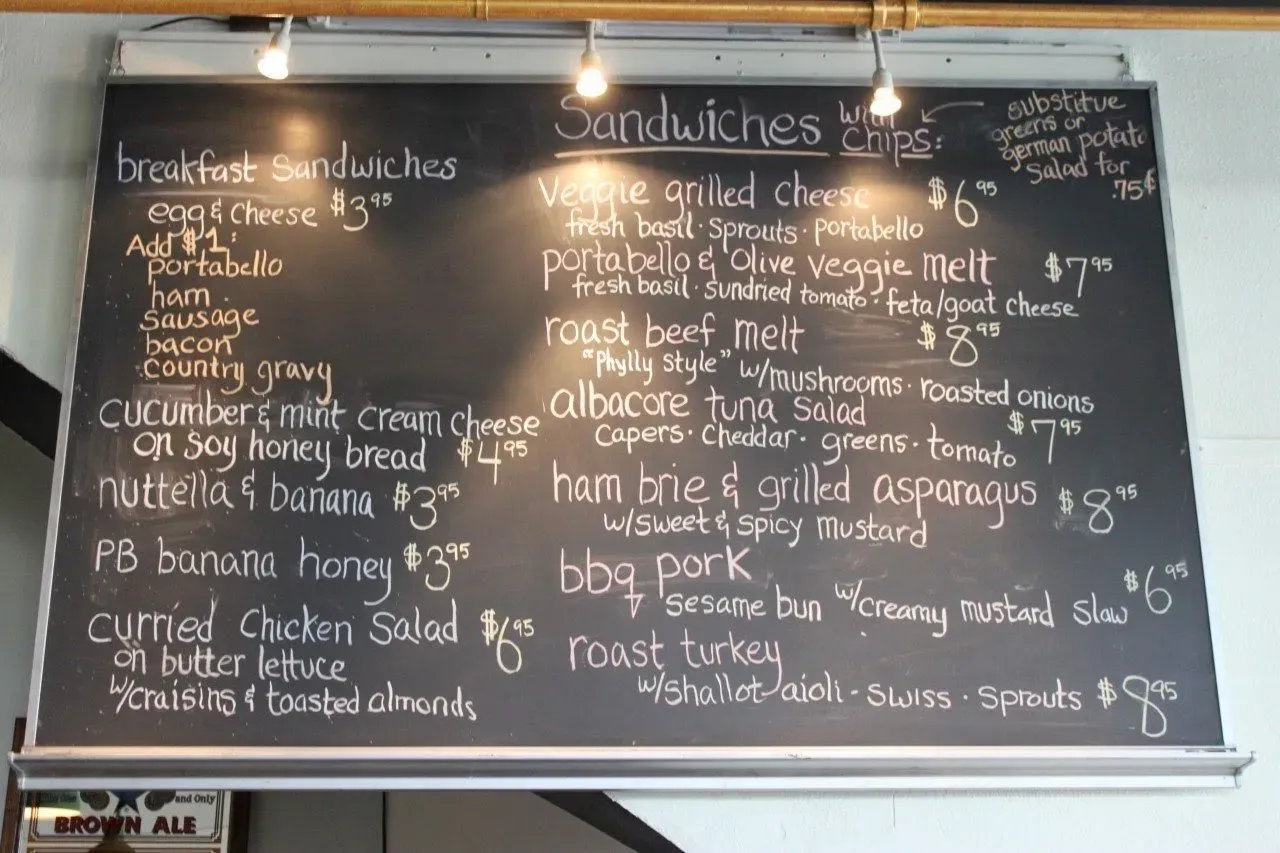 breakfast Sandwiches
egg & Cheese $3.95
Add $1:
portabello
ham
Sausage
bacon
Country gravy
Cucumber & mint Cream Cheese
on Soy honey bread $4.95
nuttella & banana $3.95
PB banana honey $3.95
Curried Chicken Salad $6.95
on butter lettuce
w/craisins & toasted almonds
Sandwiches with
Chips:
Substitue
greens or
german potato
Salad for
.75¢
Veggie grilled cheese $6.95
fresh basil · Sprouts · portabello
portabello & Olive veggie melt $7.95
fresh basil · Sundried tomato · feta/goat cheese
roast beef melt $8.95
"Phylly Style" w/mushrooms · roasted onions
albacore tuna Salad $7.95
Capers · Cheddar · greens · tomato
ham brie & grilled asparagus $8.95
w/Sweet & Spicy mustard
bbq pork $6.95
Sesame bun w/Creamy mustard Slaw
roast turkey
w/Shallot aioli - Swiss · Sprouts $8.95
and Only
BROWN ALE